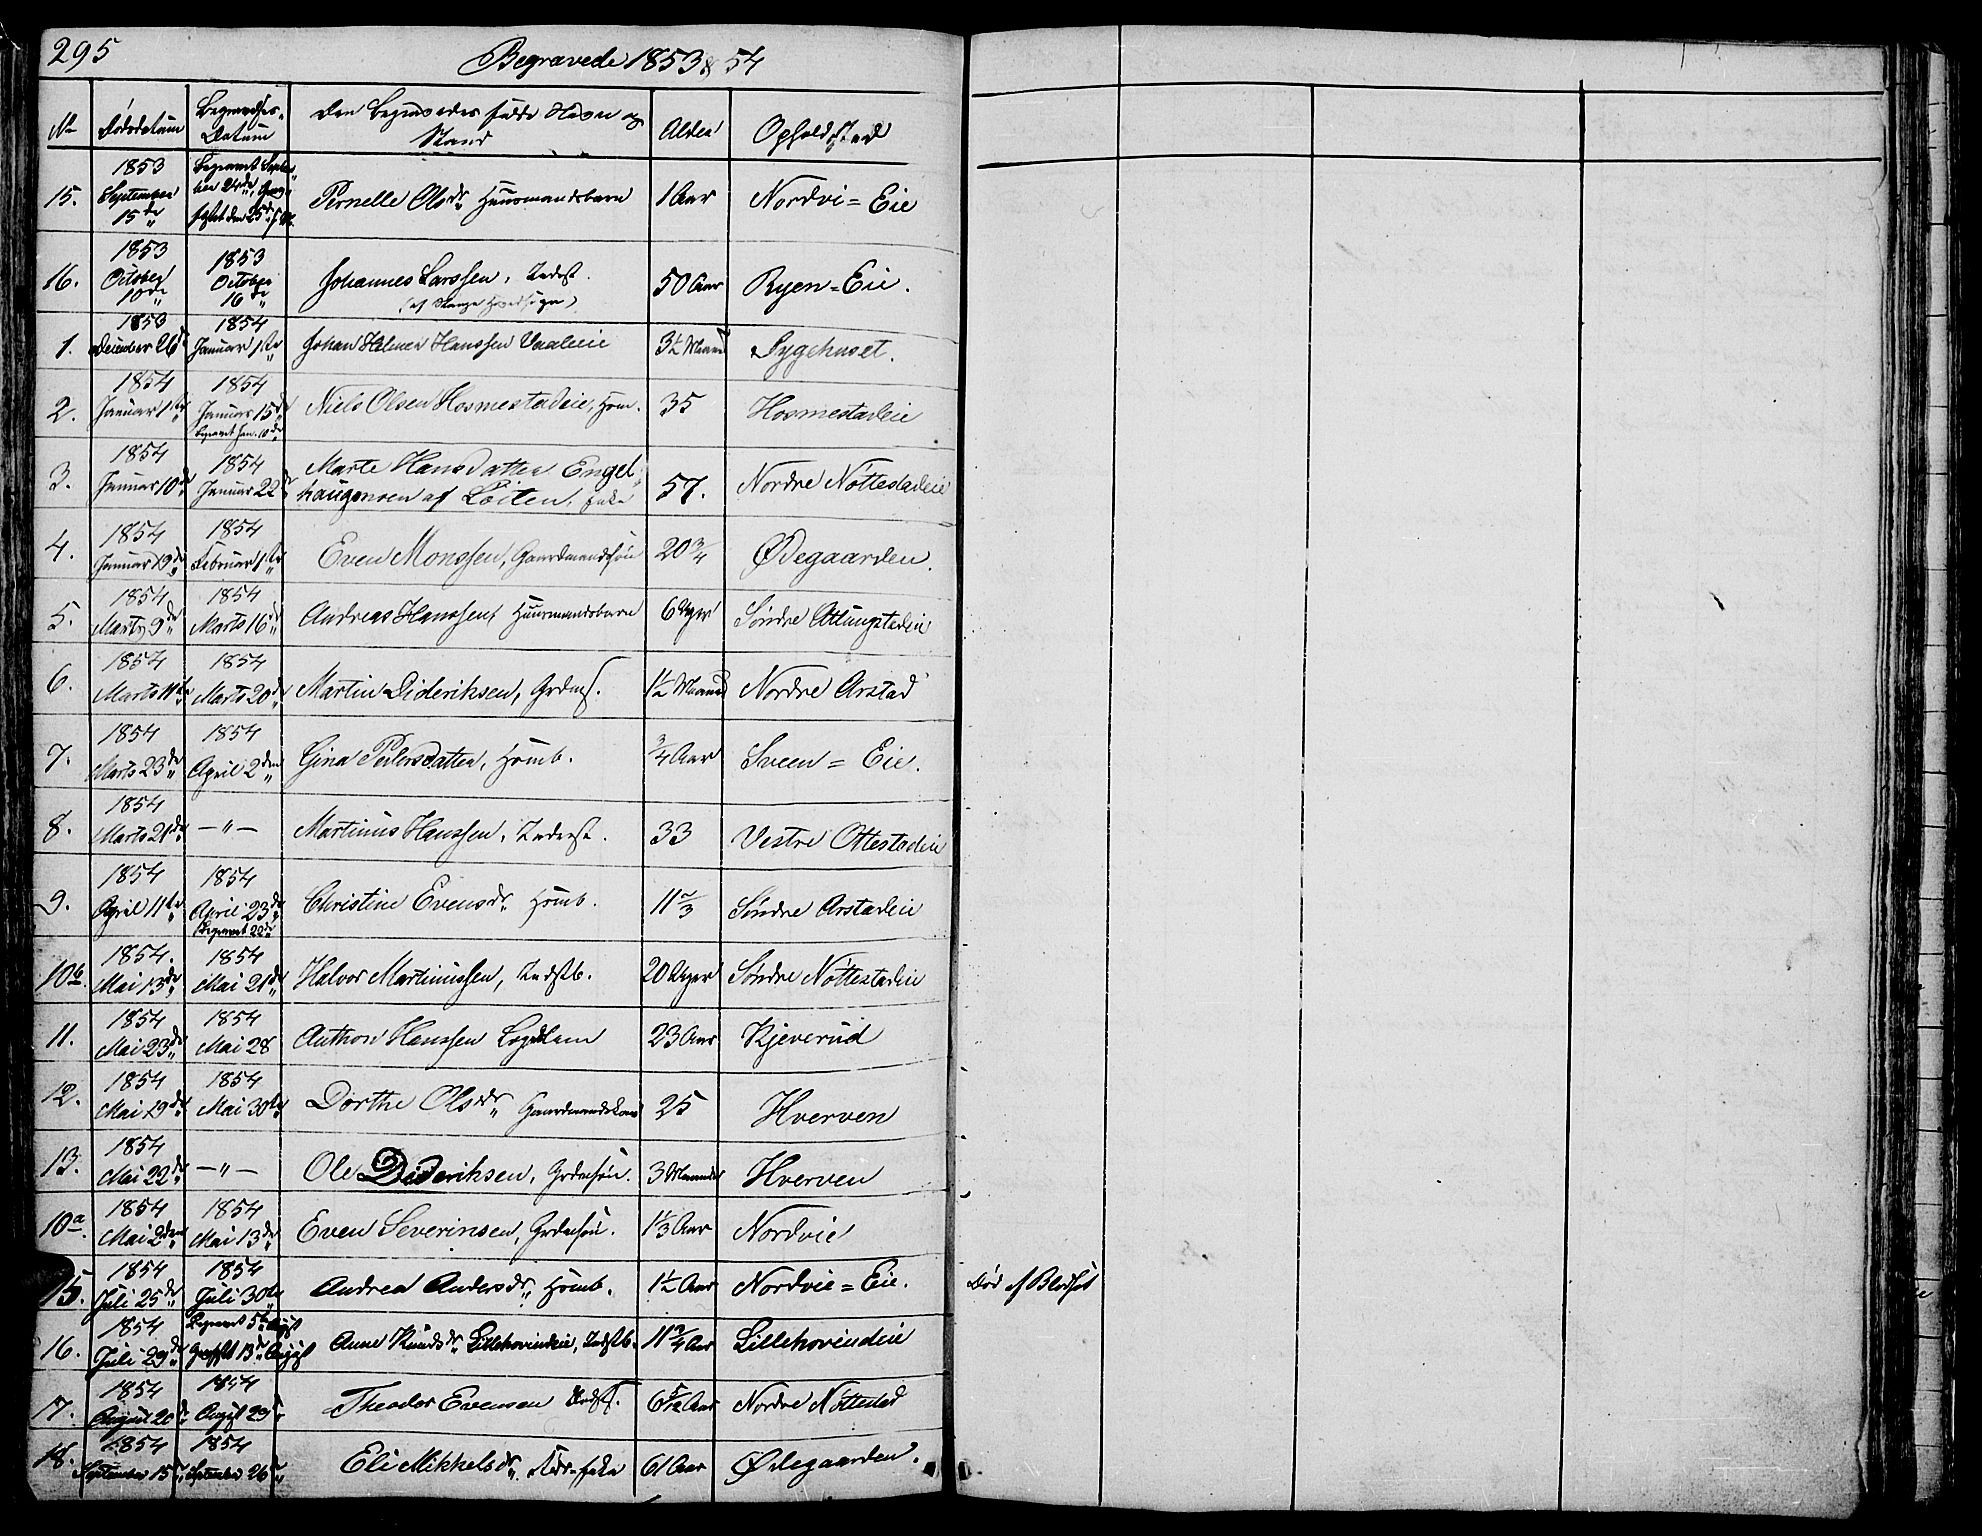 295
Begravede 1853 & 54
No Dødsdatum Begravelses-Datum Den Begravedes fulde Navn og Stand Alder Opholdssted
15. 1853 September 15de Begravet September 24de, den 25de Pernelle Olsdr. Huusmandsbarn 1 Aar Nordvi = Eie
16. 1853 October 10de 1853 October 16de Johannes Larssen, Inderst. 50 Aar Ryen = Eie.
(af Stange)
1. 1853 December 26de 1854 Januar 1ste Johan Hanssen 3½ Maaned Sygehuset.
2. 1854 Januar 1ste 1854 Januar 15de Begravet Jan. 10de Niels Olsen Hosmestadeie, Hsm. 35 Hosmestadeie
3. 1854 Januar 10de 1854 Januar 22de Marte Hansdatter Engel-
haugensen af Løiten, Enke 57. Nordre Nøttestadeie
4. 1854 Januar 19de 1854 Februar 1ste Even Monssen, Gaardmandssøn 20¾ Ødegaarden.
5. 1854 Marts 9de 1854 Marts 16de Andreas Hanssen, Huusmandsbarn 6 Uger Søndre
6. 1854 Marts 11te 1854 Marts 20de Martin Dideriksen, Grdms. 1½ Maaned Nordre Arstad
7. 1854 Marts 23de 1854 April 2den Gina Pedersdatter, Hsmb. ¾ Aar Sveen = Eie.
8. 1854 Marts 21de —"— Martinus Hanssen, Inderst. 33 Vestre Ottestadeie
9. 1854 April 11te 1854 April 23de Begravet 22de Christine Evensdr. Hsmb. 11⅔ Søndre Arstadeie
10b. 1854. Mai 13de 1854 Mai 21de Halvor Martinussen, Indstb. 20 Uger Søndre Nøttestadeie
11. 1854 Mai 23de 1854 Mai 28 Anthon Hanssen 23 Aar Kjeverud
12. 1854 Mai 19de 1854 Mai 30te Dorthe Olsdr. Gaardmandskone 25 Hverven
13. 1854 Mai 22de —"— Ole Dideriksen, Grdmsøn. 3 Maaneder Hverven
10a. 1854 Mai 2den 1854 Mai 13de Even Severinsen, Grdmsøn. 1⅓ Aar Nordvie
15. 1854 Juli 25de 1854 Juli 30te Andrea Andersdr. Hsmb. 1½ Aar Nordvie = Eie. Død af Blodsot
16. 1854 Juli 29de Begravet 5te August 13de August Anne Knudsdr. Lillehovindeie, Indstb. 11¾ Aar Lillehovindeie
17. 1854 August 20de 1854 August 29de Theodor Evensen Indst. 6 5/12 Aar Nordre Nøttestad
18. 1854 September 15de 1854 September 26de Eli Mikkelsdr. 61 Aar Ødegaarden.